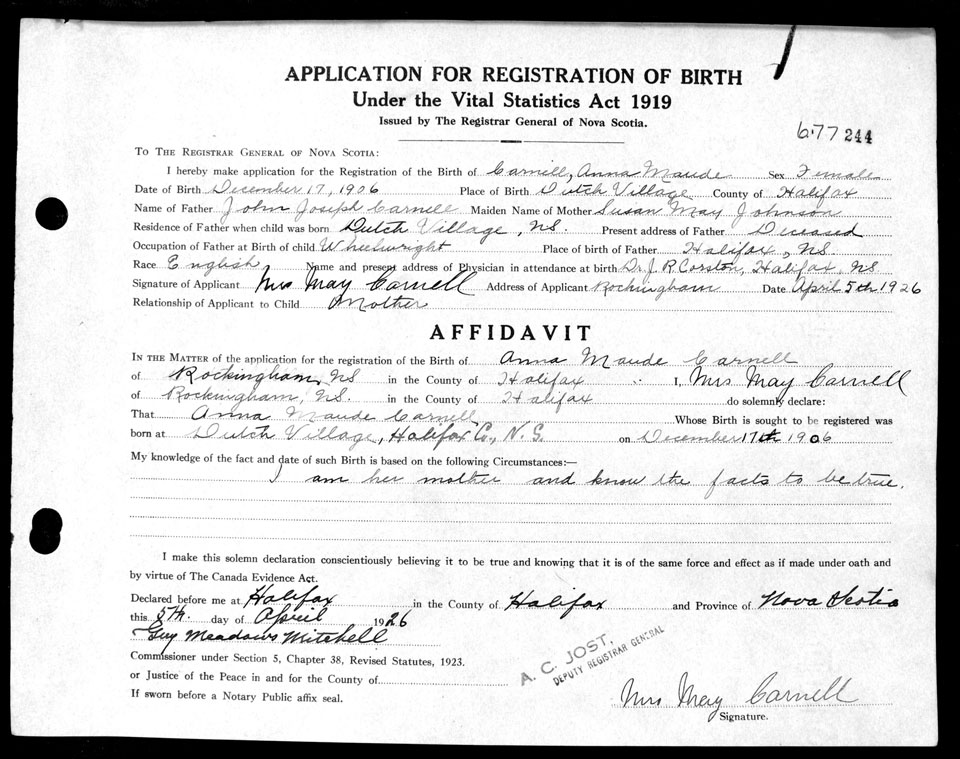 APPLICATION FOR REGISTRATION OF BIRTH
Under the Vital Statistics Act 1919
Issued by The Registrar General of Nova Scotia.
677 244
TO THE REGISTRAR GENERAL OF NOVA SCOTIA:
I hereby make application for Registration of the Birth of Carnell, Anna Maude Sex Female
Date of Birth December 17, 1906 Place of Birth Dutch Village County of Halifax
Name of Father John Joseph Carnell Maiden Name of Mother Susan May Johnson
Residence of Father when child was born Dutch Village, N.S. Present address of Father Deceased
Occupation of Father at Birth of child Wheelwright Place of birth of Father Halifax, NS
Race English Name and present address of Physician in attendance at birth Dr. J. R. Corston, Halifax, NS
Signature of Applicant Mrs May Carnell Address of Applicant Rockingham Date April 5th 1926
Relationship of Applicant to Child Mother
AFFIDAVIT
IN THE MATTER of the application for the registration of the Birth of Anna Maude Carnell
of Rockingham, NS in the County of Halifax I, Mrs May Carnell
of Rockingham, N.S. in the County of Halifax do solemnly declare:
That Anna Maude Carnell Whose Birth is sought to be registered was
born at Dutch Village, Halifax Co., N.S. on December 17th 1906
My knowledge of the fact and date of such Birth is based on the following Circumstances:—
I am her mother and know the facts to be true.
I make this solemn declaration conscientiously believing it to be true and knowing that it is of the same force and effect as if made under oath and
by virtue of The Canada Evidence Act.
Declared before me at Halifax in the County of Halifax and Province of Nova Scotia
this 5th. day of April 1926
Guy Meadows Mitchell
Commissioner under Section 5, Chapter 38, Revised Statutes, 1923.
or Justice of the Peace in and for the County of
If sworn before a Notary Public affix seal.
A. C. JOST,
DEPUTY REGISTRAR GENERAL
Mrs May Carnell
Signature.